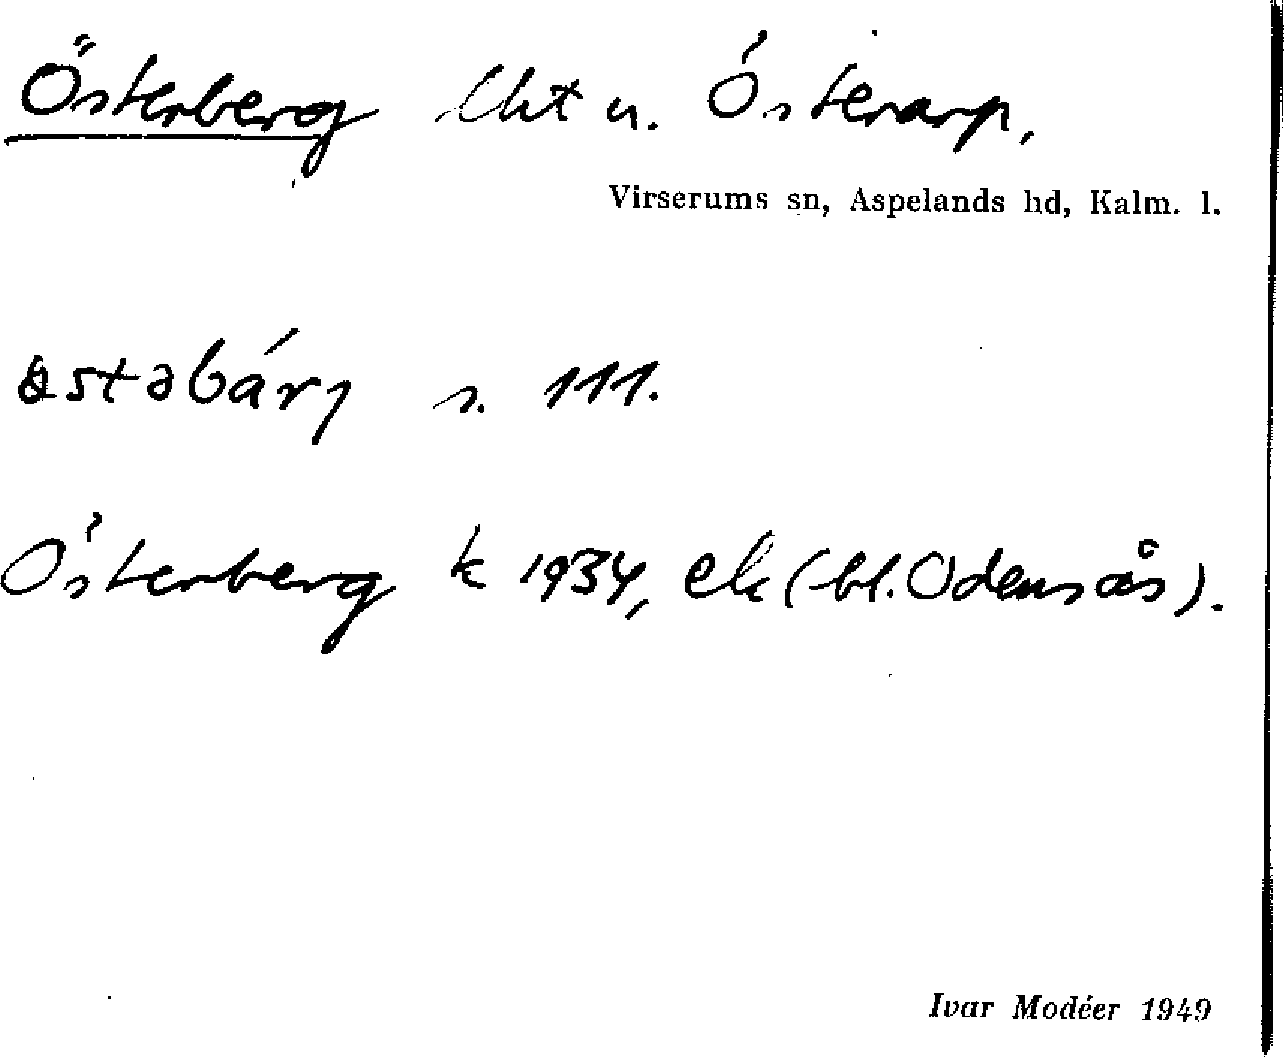 Österberg lht u. Österarp,
Virserums sn, Aspelands hd, Kalm. l.
östəbárj s. 111.
Österberg k 1934, ek (bl. Odensås).
Ivar Modéer 1949